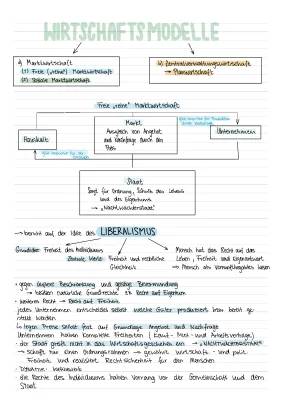 WIRTSCHAFTSMODELLE
a) Marktwirtschaft
(1) Freie ("reine") Marktwirtschaft
(2) Soziale Marktwirtschaft
b) Zentralverwaltungswirtschaft
→ Planwirtschaft
Freie "reine" Marktwirtschaft
Haushalt
Markt
Ausgleich von Angebot
und Nachfrage durch den
Preis
Unternehmen
Staat
Sorgt für Ordnung, Schutz des Lebens
und des Eigentums
→ "Nachtwächterstaat"
→ beruht auf der Idee des LIBERALISMUS
Grundidee: Freiheit des Individuums
Zentrale Werte: Freiheit und rechtliche
Gleichheit
Mensch hat das Recht auf das
Leben, Freiheit und Eigenart
→ Mensch als vernunftbegabtes Wesen
· gegen äußere Beschränkung und geistige Bevormundung
→ besitzen natürliche Grundrechte z.B. Recht auf Eigentum
· weiteres Recht → Recht auf Freiheit
jedes Unternehmen entscheidet selbst welche Güter produziert bzw. bereit ge-
stellt werden
↳ legen Preise selbst fest auf Grundlage Angebot und Nachfrage
Unternehmen haben komplette Freiheiten (Kauf-, Miet- und Arbeitsverträge)
· der Staat greift nicht in das Wirtschaftsgeschehen ein → "NACHTWÄCHTERSTAAT"
→ schafft nur einen Ordnungsrahmen → gewährt wirtschaft. und polit.
Freiheit und realisiert Rechtssicherheit für den Menschen
die Rechte des Individuums haben Vorrang vor der Gemeinschaft und dem
Staat